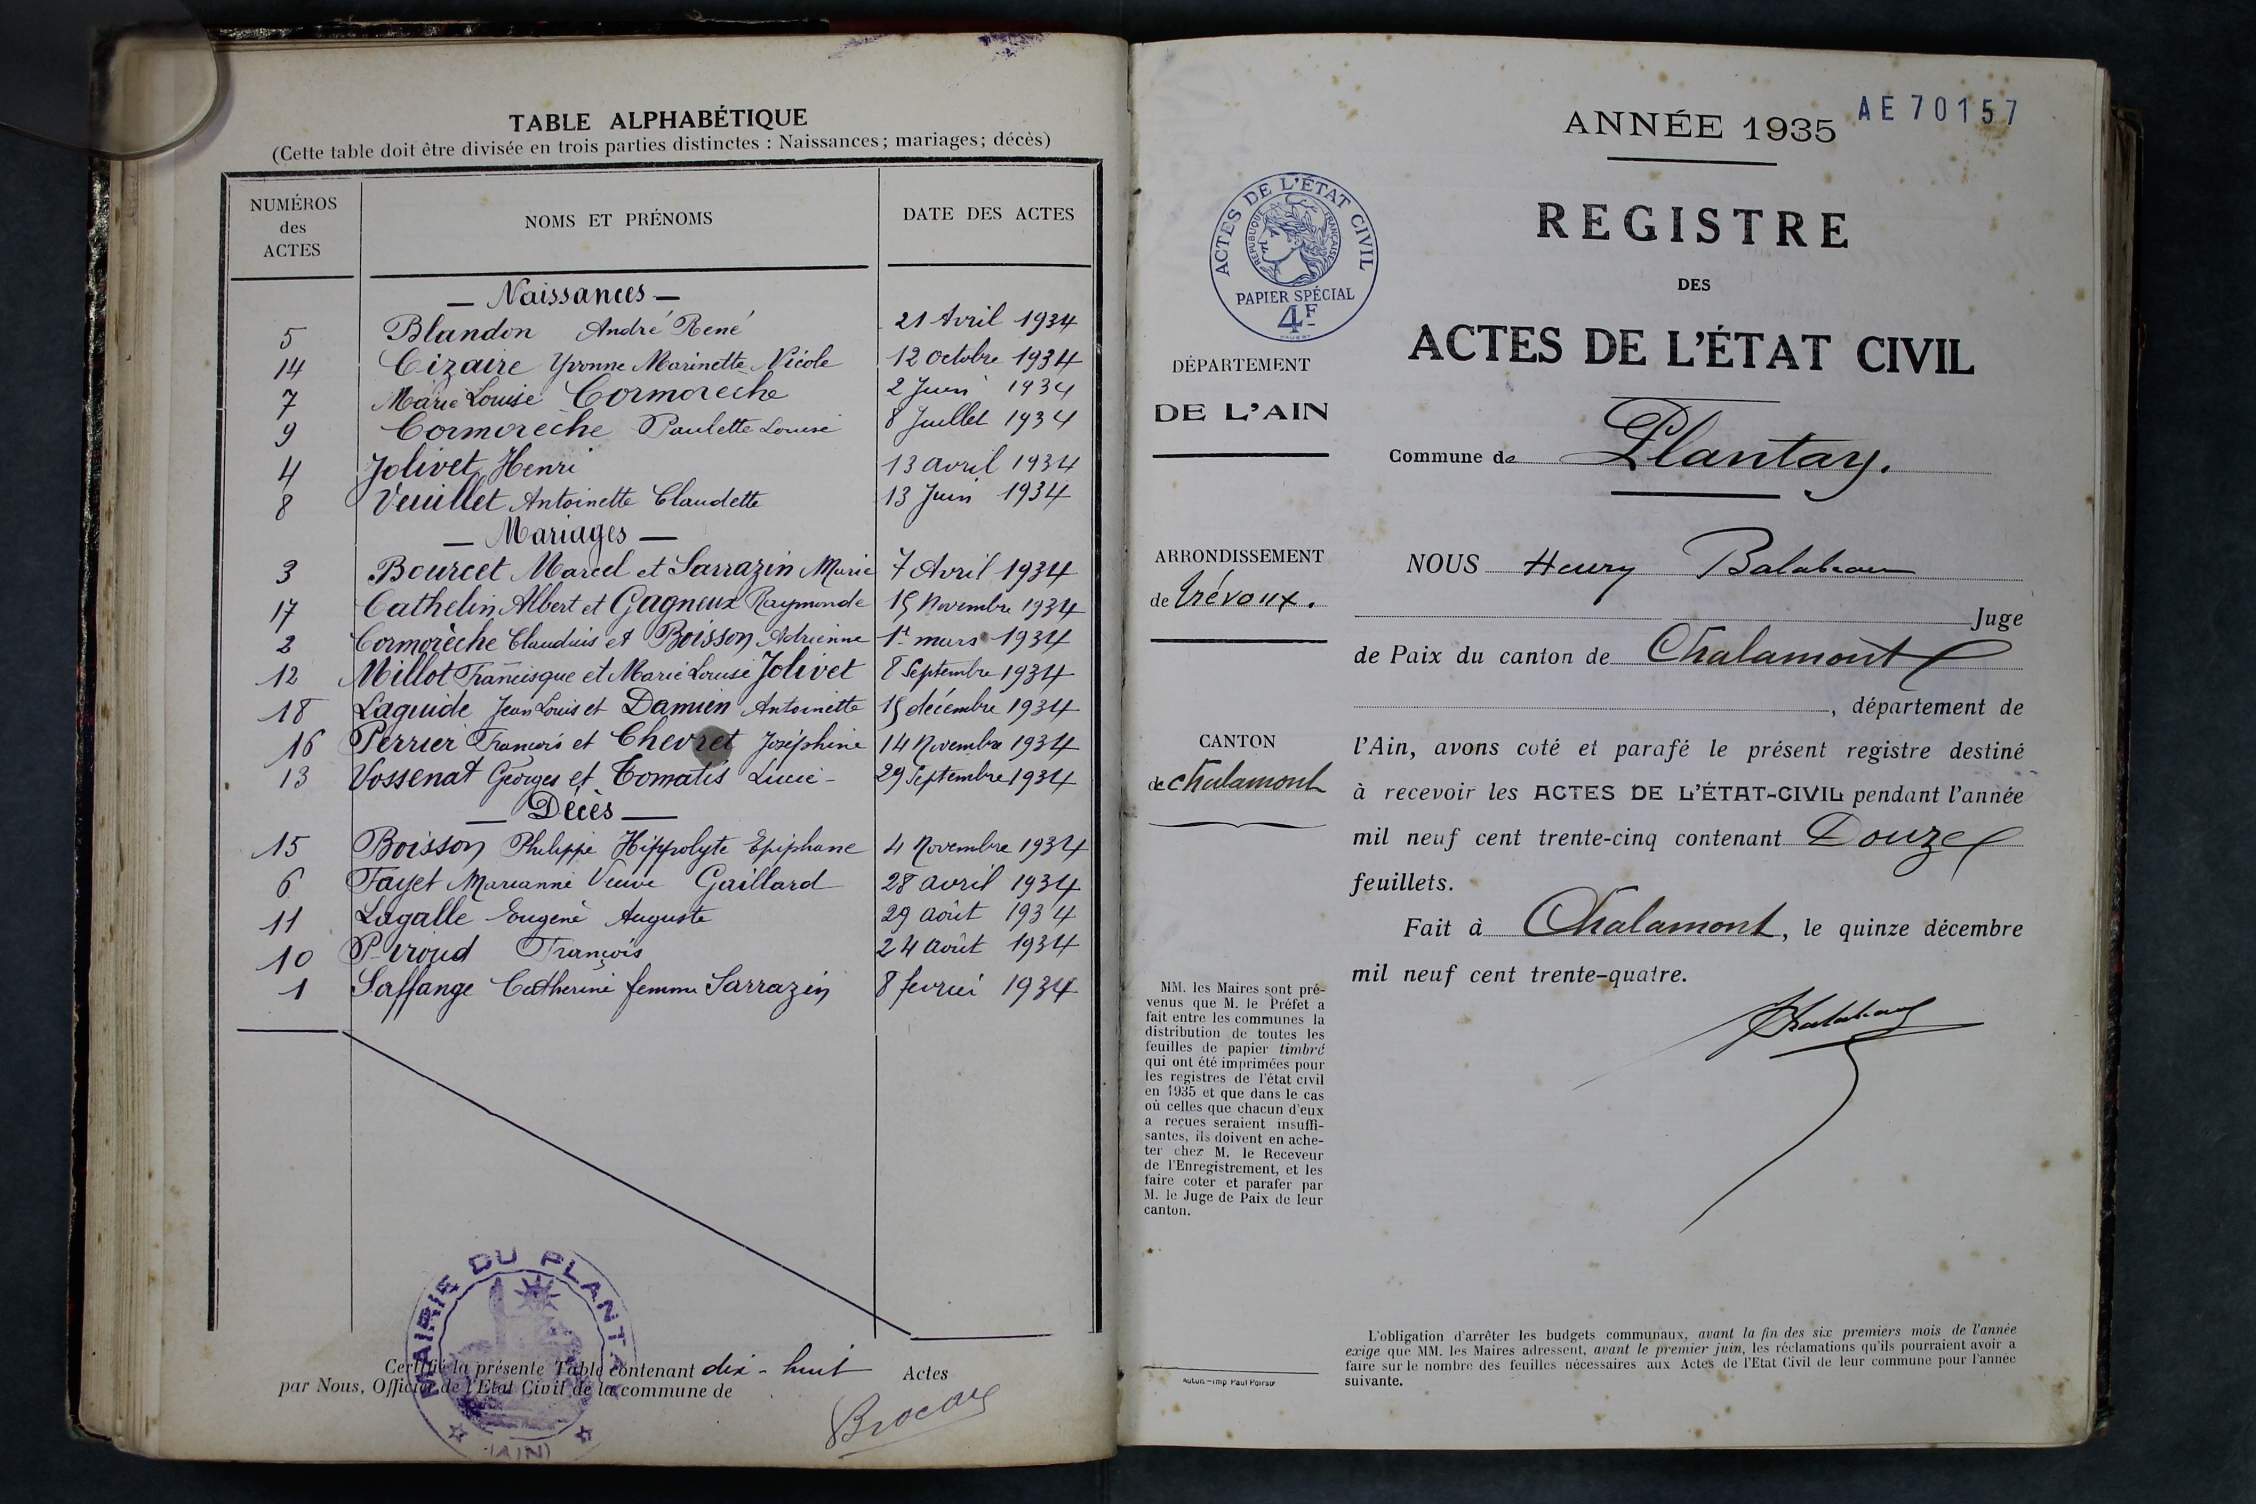 TABLE ALPHABÉTIQUE
(Cette table doit être divisée en trois parties distinctes : Naissances; mariages; décès)
NUMÉROS des ACTES NOMS ET PRÉNOMS DATE DES ACTES
— Naissances —
5 Blandon André René 21 Avril 1934
14 Cizaire Yvonne Marinette Nicole 12 octobre 1934
7 Marie Louise Cormorèche 2 Juin 1934
9 Cormorèche Paulette Louise 8 Juillet 1934
4 Jolivet Henri 13 avril 1934
8 Veuillet Antoinette Claudette 13 Juin 1934
— Mariages —
3 Bourcet Marcel et Sarrazin Marie 7 Avril 1934
17 Cathelin Albert et Gagneux Raymonde 15 Novembre 1934
2 Cormorèche Claudius et Boisson Adrienne 1er mars 1934
12 Millot Francisque et Marie Louise Jolivet 8 Septembre 1934
18 Laguide Jean Louis et Damien Antoinette 15 décembre 1934
16 Perrier François et Chevret Joséphine 14 Novembre 1934
13 Vossenat Georges et Tomatis Lucie - 29 Septembre 1934
— Décès —
15 Boisson Philippe Hippolyte Epiphane 4 Novembre 1934
6 Fayet Marianne Veuve Gaillard 28 avril 1934
11 Lagalle Eugène Auguste 29 août 1934
10 François 24 août 1934
1 Saffange Catherine femme Sarrazin 8 fevrier 1934
MAIRIE DU PLANTAY
(AIN)
Certifié la présente Table contenant dix-huit Actes
par Nous, Officier de l'Etat Civil de la commune de
ANNÉE 1935 AE 70157
REGISTRE
DES
ACTES DE L'ÉTAT CIVIL
ACTES DE L'ÉTAT CIVIL
RÉPUBLIQUE FRANÇAISE
PAPIER SPÉCIAL
4F
DÉPARTEMENT
DE L'AIN
Commune de Plantay.
ARRONDISSEMENT
de Trévoux.
CANTON
de Chalamont
NOUS Henry
Juge
de Paix du canton de Chalamont
, département de
l'Ain, avons coté et parafé le présent registre destiné
à recevoir les ACTES DE L'ÉTAT-CIVIL pendant l'année
mil neuf cent trente-cinq contenant Douze
feuillets.
Fait à Chalamont, le quinze décembre
mil neuf cent trente-quatre.
MM. les Maires sont pré-
venus que M. le Préfet a
fait entre les communes la
distribution de toutes les
feuilles de papier timbré
qui ont été imprimées pour
les registres de l'état civil
en 1935 et que dans le cas
où celles que chacun d'eux
a reçues seraient insuffi-
santes, ils doivent en ache-
ter chez M. le Receveur
de l'Enregistrement, et les
faire coter et parafer par
M. le Juge de Paix de leur
canton.
L'obligation d'arrêter les budgets communaux, avant la fin des six premiers mois de l'année
exige que MM. les Maires adressent, avant le premier juin, les réclamations qu'ils pourraient avoir a
faire sur le nombre des feuilles nécessaires aux Actes de l'Etat Civil de leur commune pour l'année
suivante.